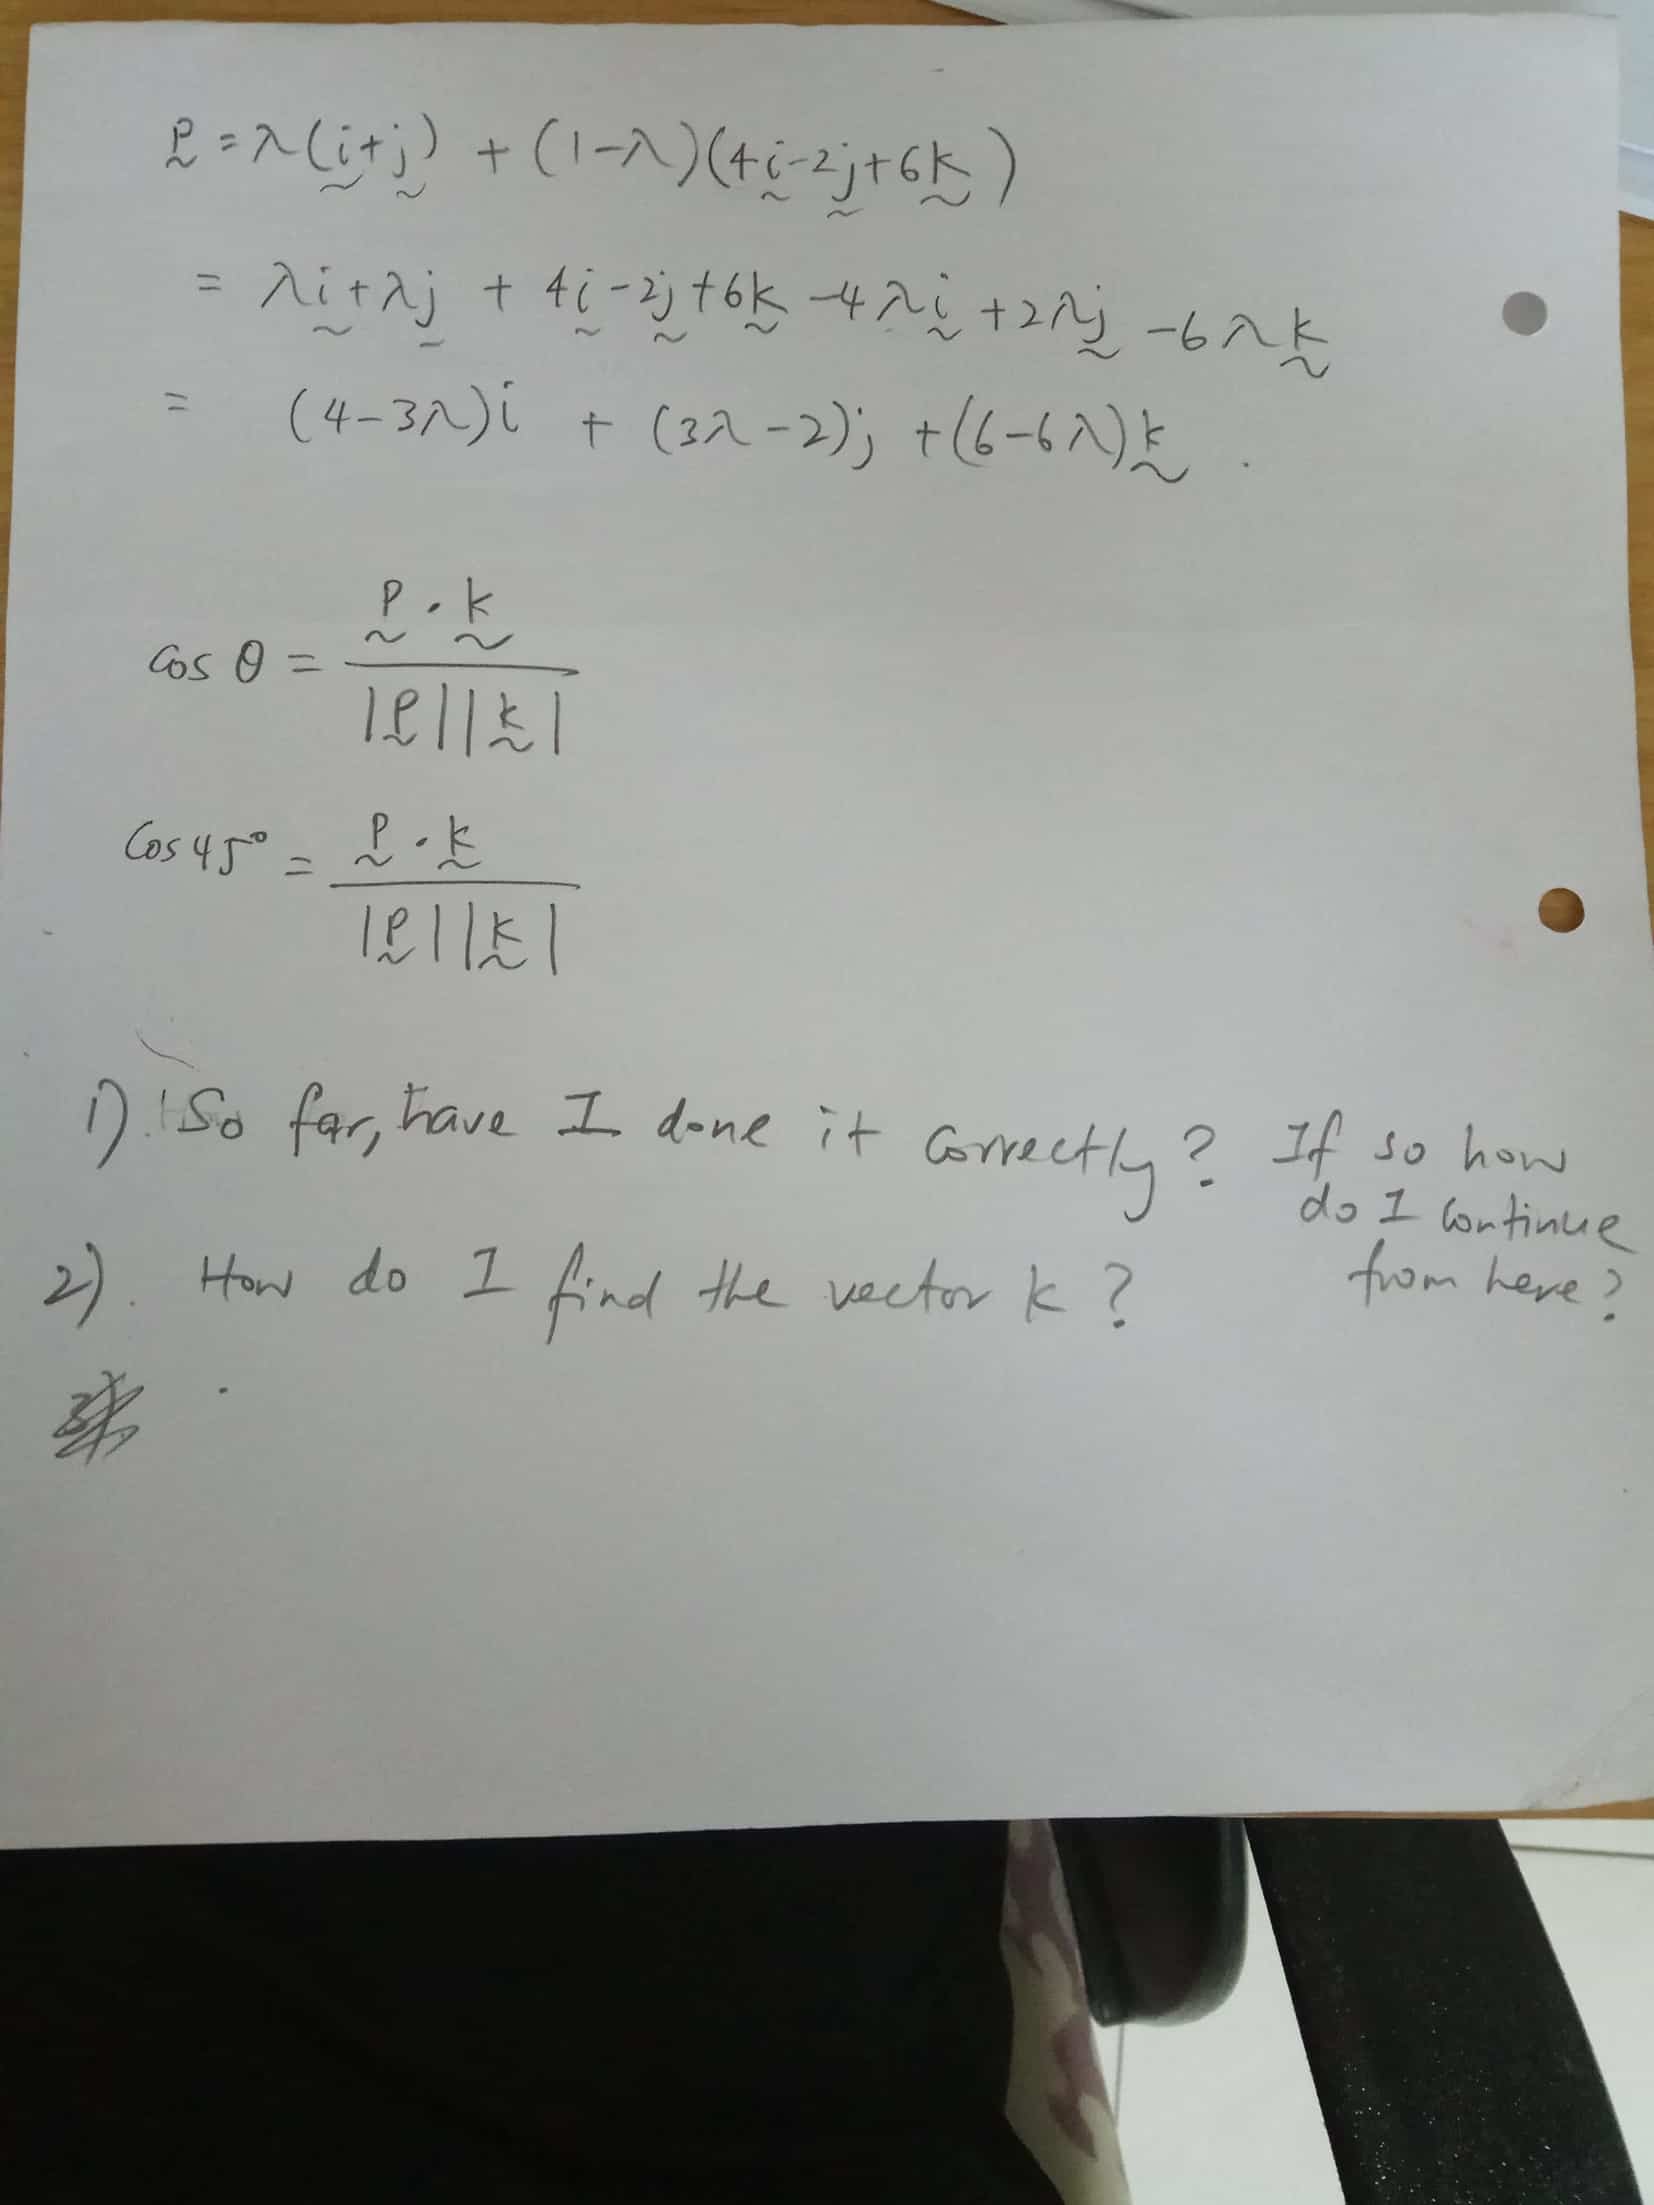 p = λ(i+j) + (1-λ)(4i-2j+6k)
= λi+λj + 4i-2j+6k -4λi +2λj -6λk
= (4-3λ)i + (3λ-2)j +(6-6λ)k .
cos θ = p . k / |p||k|
cos 45° = p . k / |p||k|
1). So far, have I done it correctly? If so how
do I continue
from here?
2). How do I find the vector k ?